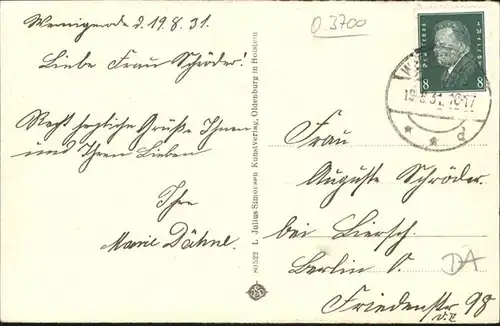 Wernigerode d. 19.8.31.
Liebe Frau Schröder!
Recht herzliche Grüße Ihnen
und Ihren Lieben
Ihre
Marie Dähne.
80522 L. Julius Simonsen Kunstverlag, Oldenburg in Holstein
0 3700
8 8
19.8.31.16-17
* * d
Frau
Auguste Schröder.
bei Liersch.
Berlin O.
Friedenstr 98
DA